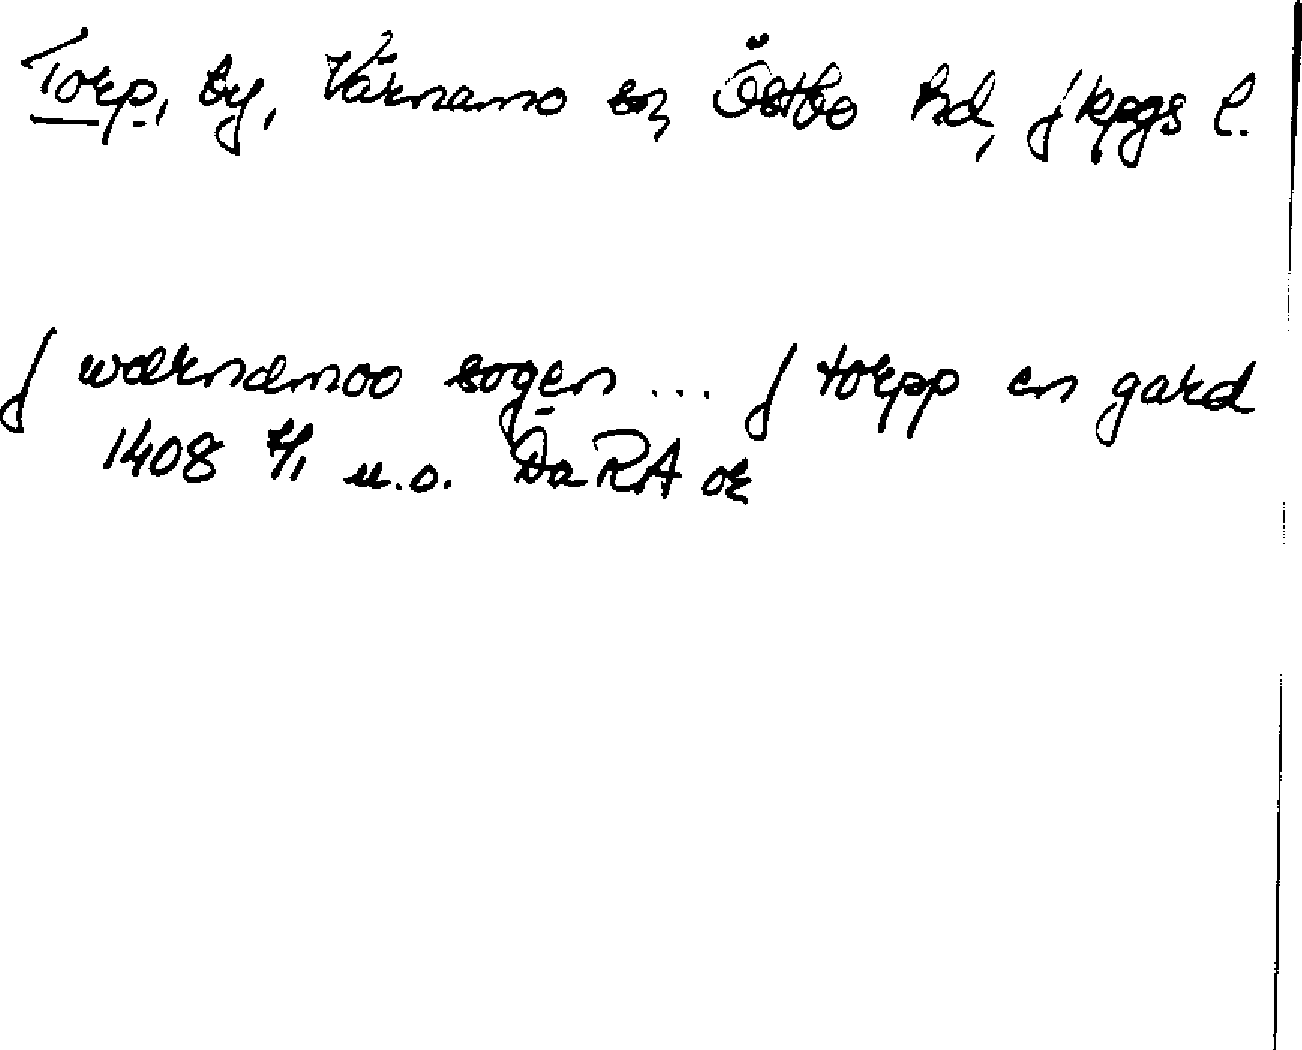 Torp, by, Värnamo sn, Östbo hd, Jkpgs l.
J wærnæmoo sogen ... J torpp en gard
1408 4/1 u.o. Da RA or